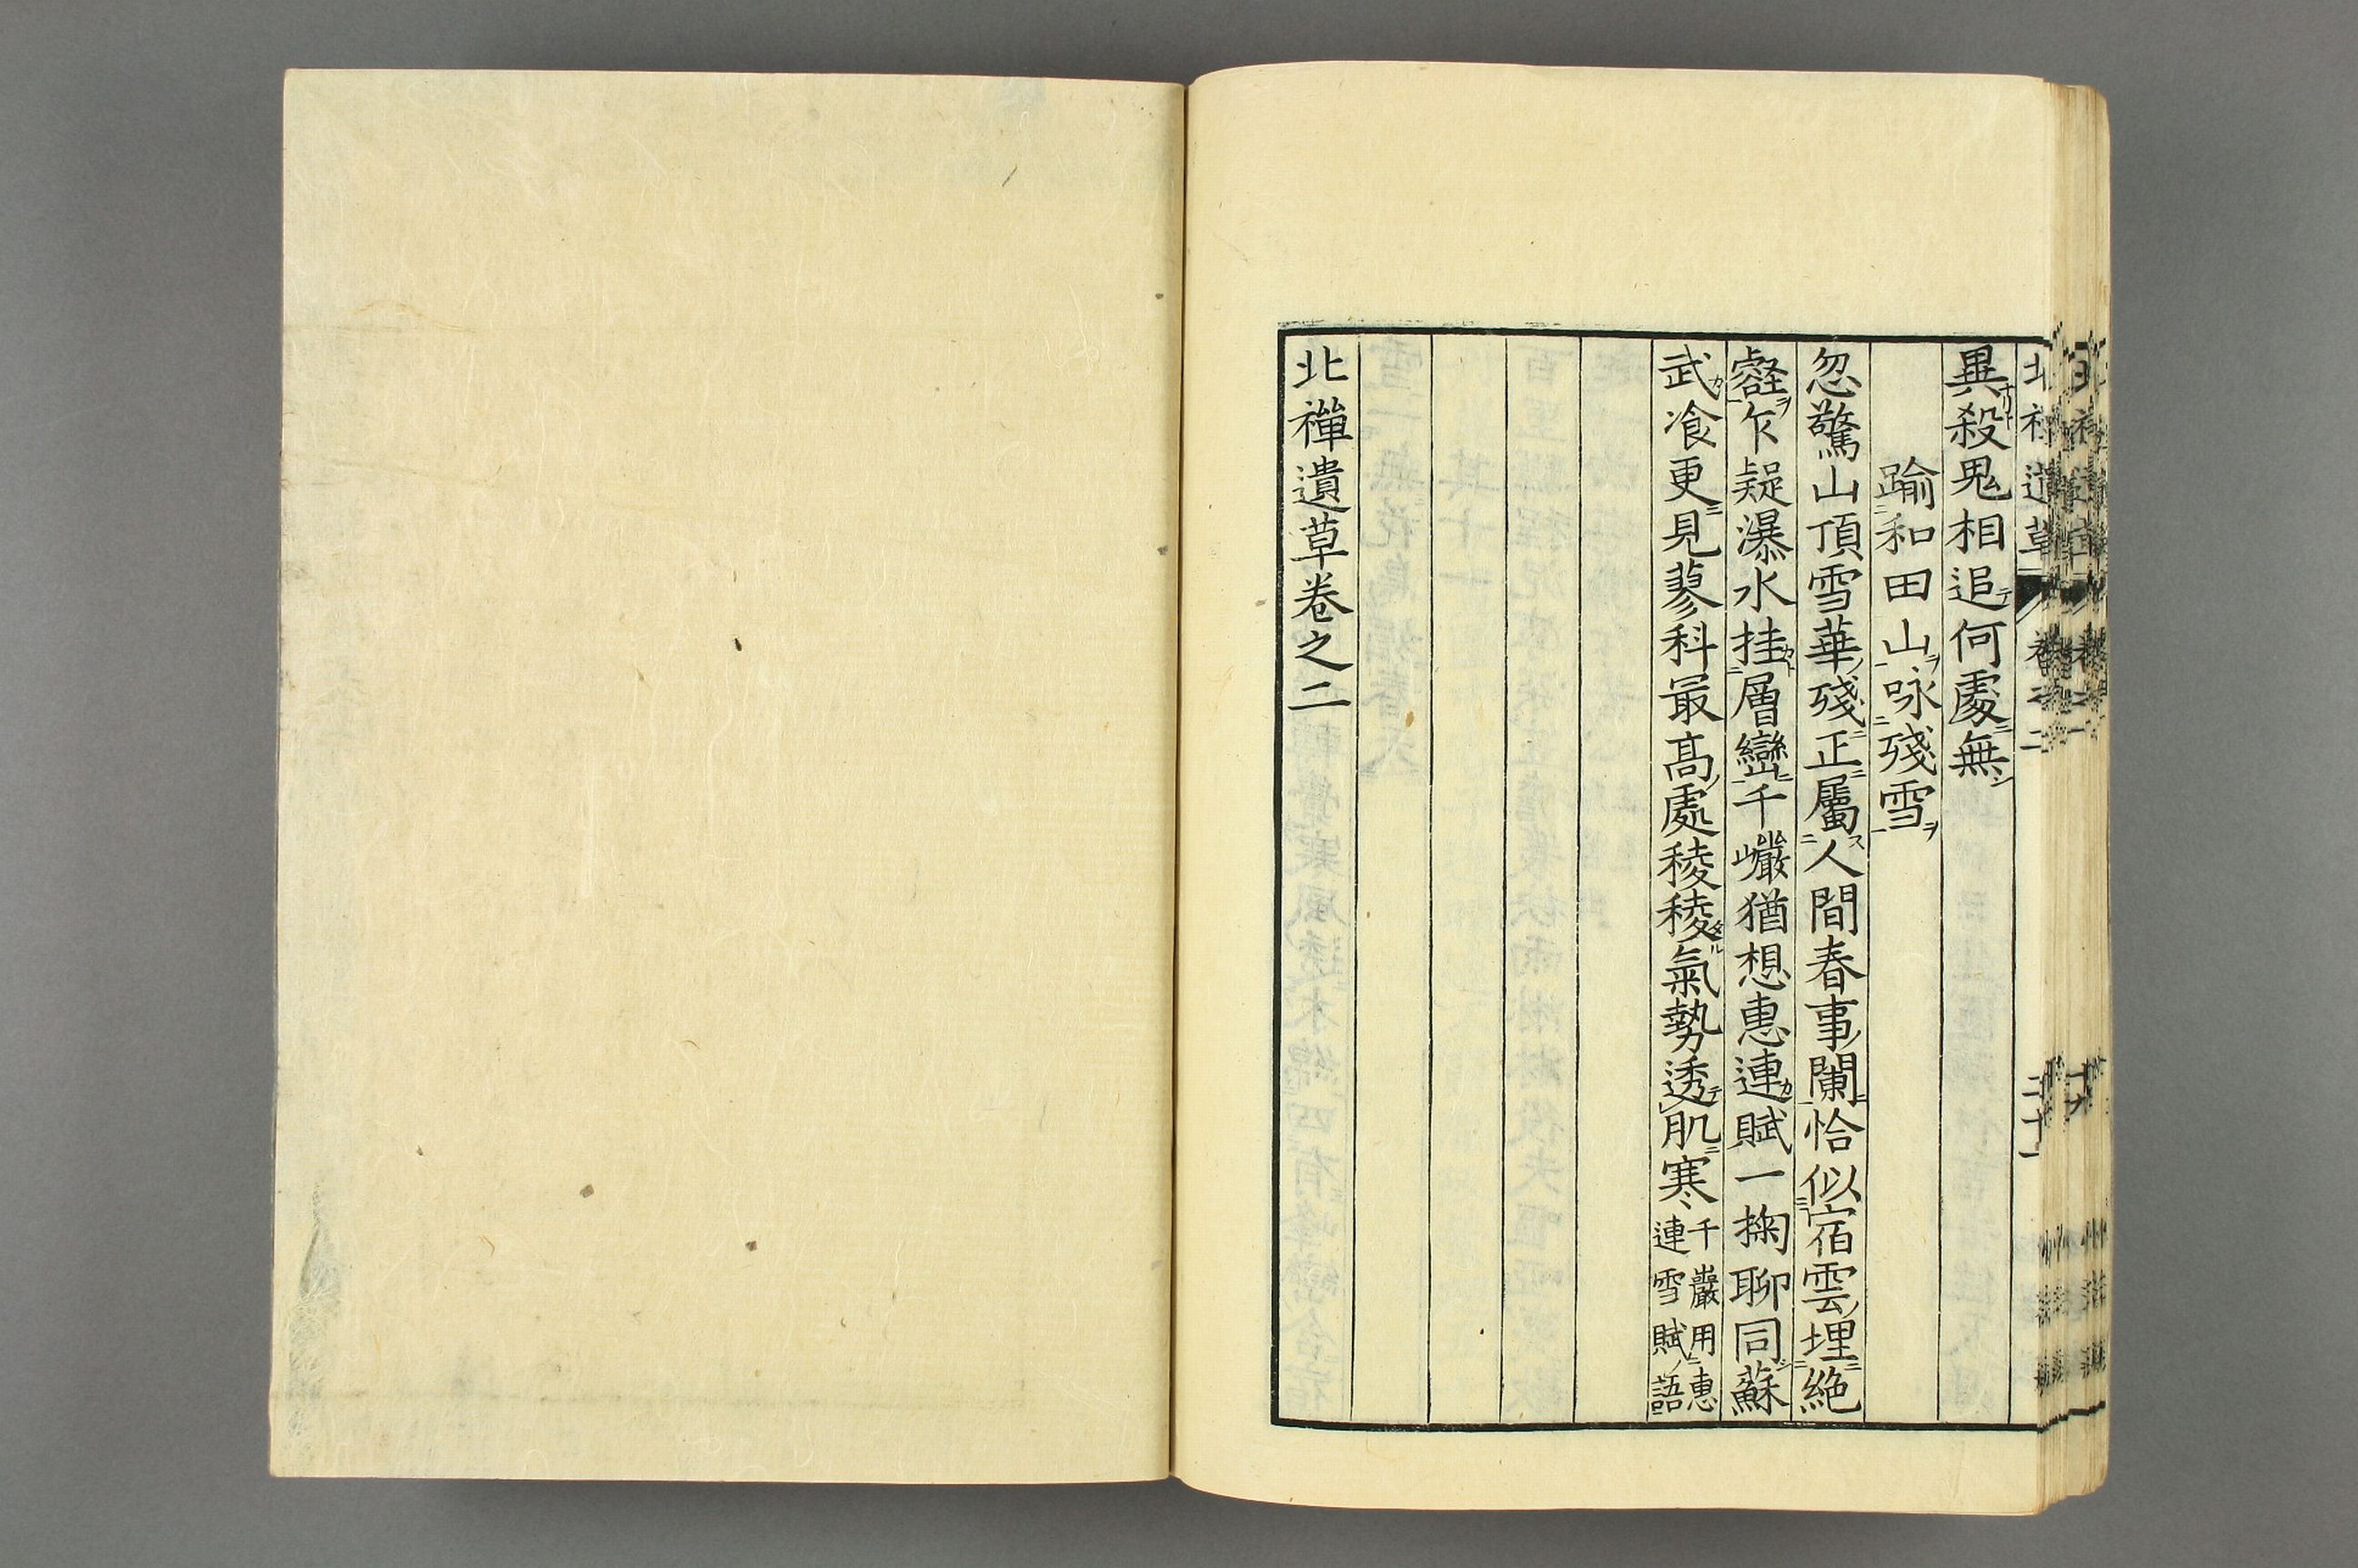 異殺鬼相追何處無
踰和田山咏殘雪
忽驚山頂雪華殘正屬人間春事闌恰似宿雲埋絕
壑乍疑瀑水挂層巒千巖猶想惠連賦一掬聊同蘇
武飡更見蓼科最髙處稜稜氣勢透肌寒
千巖用惠
連雪賦語
北禪遺草卷之二